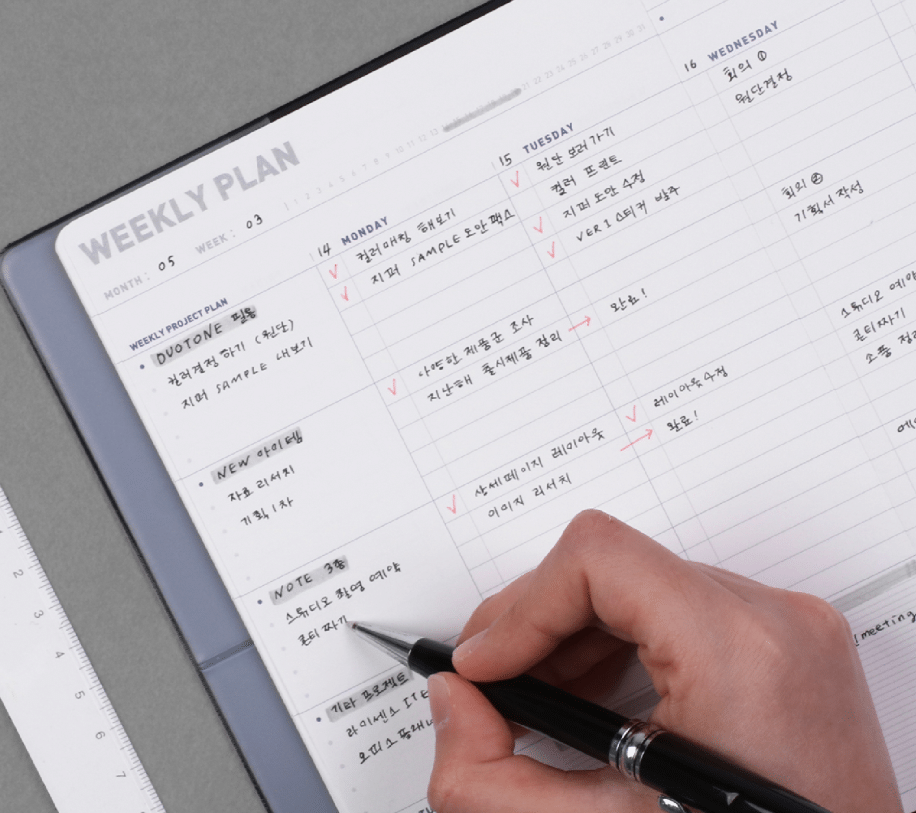 WEEKLY PLAN
MONTH : 05 WEEK : 03
1 2 3 4 5 6 7 8 9 10 11 12 13
21 22 23 24 25 26 27 28 29 30 31
WEEKLY PROJECT PLAN
DUOTONE 필통
컬러결정 하기 (원단)
지퍼 SAMPLE 내보기
NEW 아이템
자료 리서치
기획 1차
NOTE 3종
스튜디오 촬영 예약
콘티 짜기
기타 프로젝트
라이센스 ITE
오피스 플래너
14 MONDAY
컬러매칭 해보기
지퍼 SAMPLE 도안 팩스
다양한 제품군 조사
지난해 출시제품 정리
상세페이지 레이아웃
이미지 리서치
15 TUESDAY
원단 보러가기
컬러 프린트
지퍼 도안 수정
VER 1 스티커 발주
완료!
레이아웃 수정
완료!
16 WEDNESDAY
회의 ①
원단결정
회의 ②
기획서 작성
스튜디오 예약
콘티짜기
소품 정리
meeting
2
3
4
5
6
7